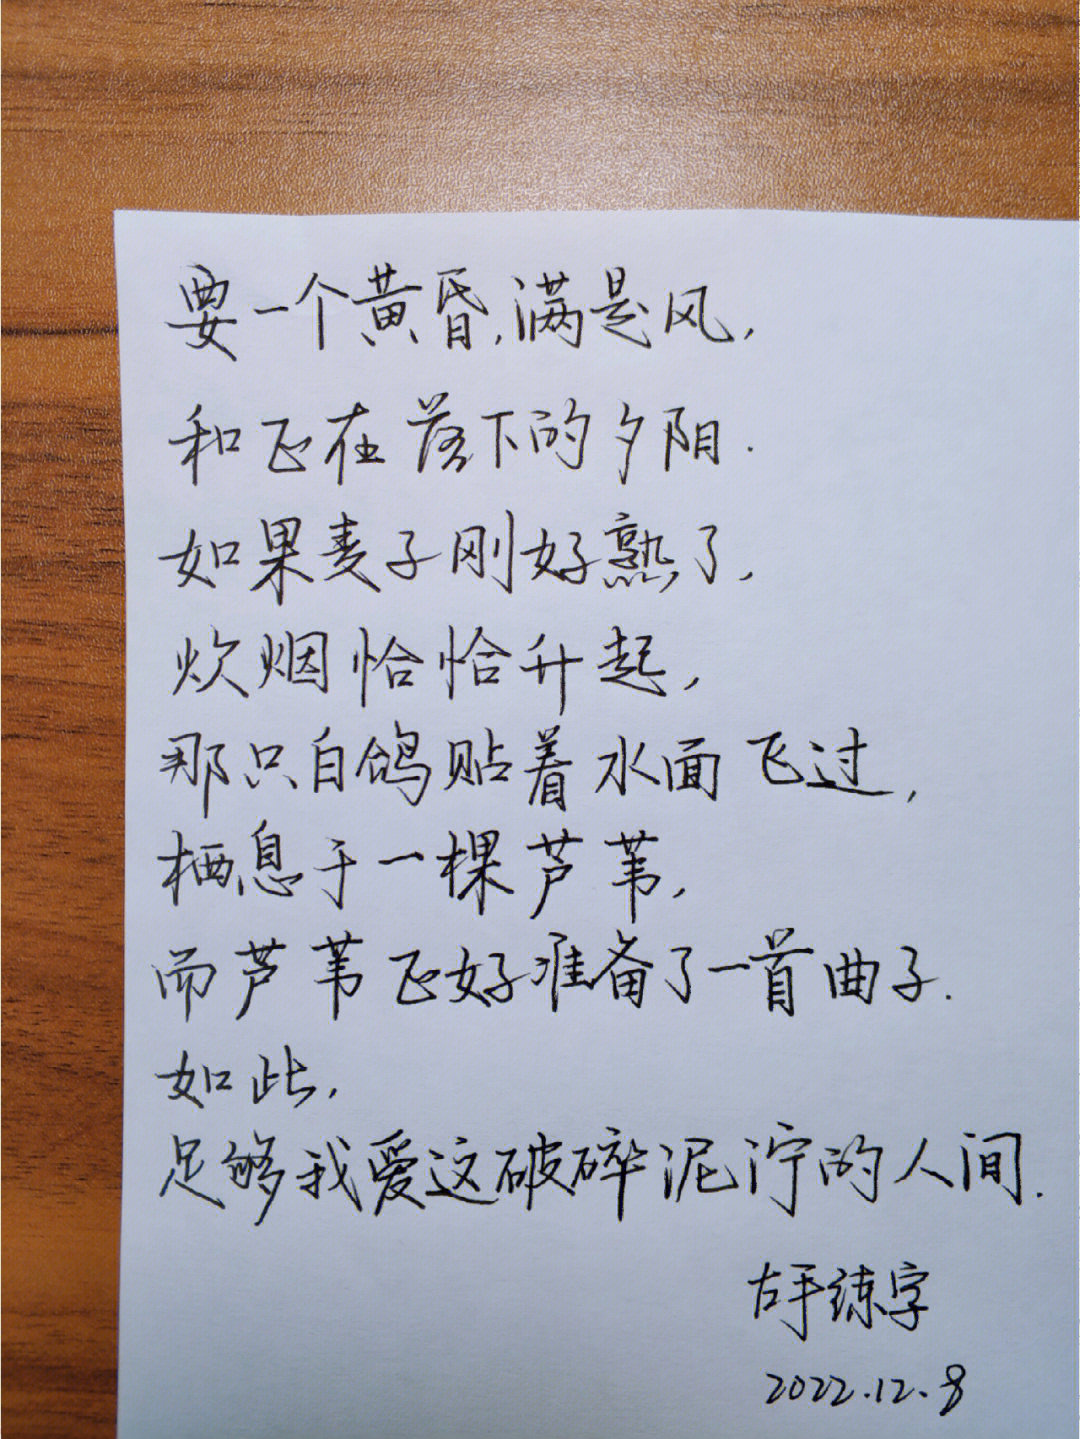 要一个黄昏,满是风,
和正在落下的夕阳.
如果麦子刚好熟了,
炊烟恰恰升起,
那只白鸽贴着水面飞过,
栖息于一棵芦苇,
而芦苇正好准备了一首曲子.
如此,
足够我爱这破碎泥泞的人间.
左手练字
2022.12.8